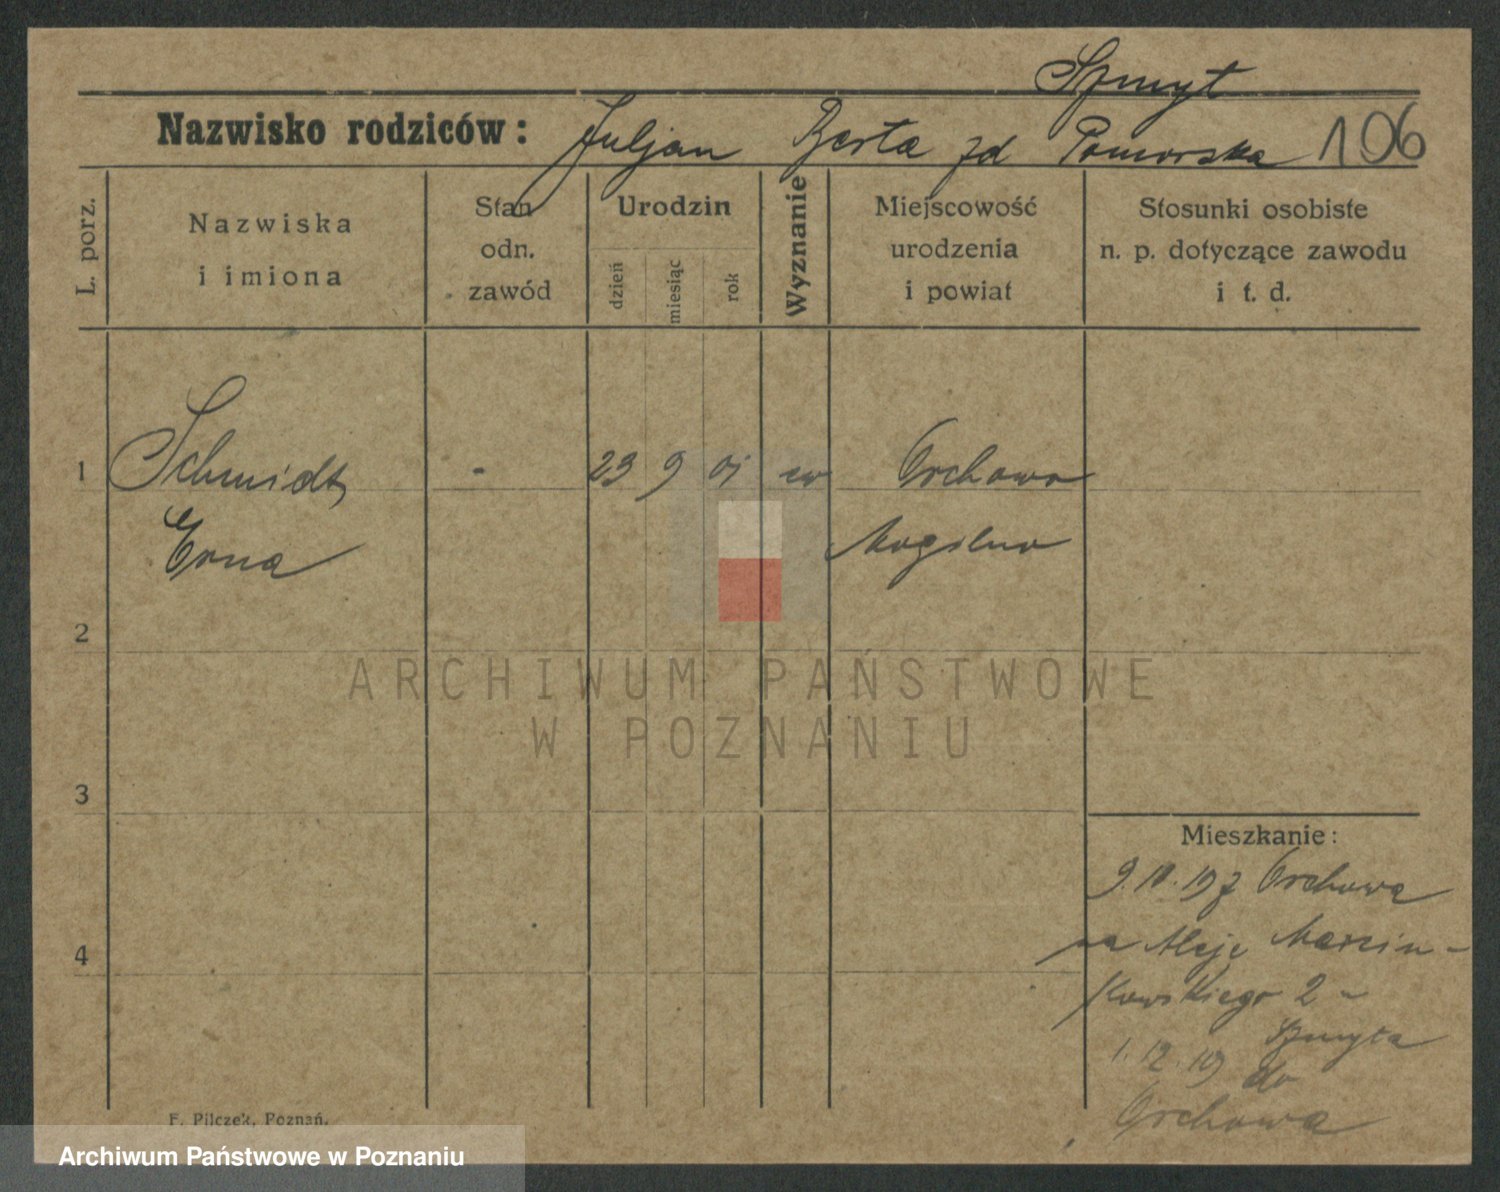 Szmyt
Nazwisko rodziców: Juljan Berta zd Pomorska 106
L. porz.
Nazwiska
i imiona
Stan
odn.
zawód
Urodzin
dzień
miesiąc
rok
Wyznanie
Miejscowość
urodzenia
i powiat
Stosunki osobiste
n. p. dotyczące zawodu
i t. d.
1 Schmidt - 23 9 01 ew Orchowo
Erna Mogilno
2
ARCHIWUM PAŃSTWOWE
W POZNANIU
3
Mieszkanie:
9.10.19 z Orchowa
4 na Aleje Marcin-
kowskiego 2 -
Szmyta
1.12.19 do
Orchowa
F. Pilczek, Poznań.
Archiwum Państwowe w Poznaniu